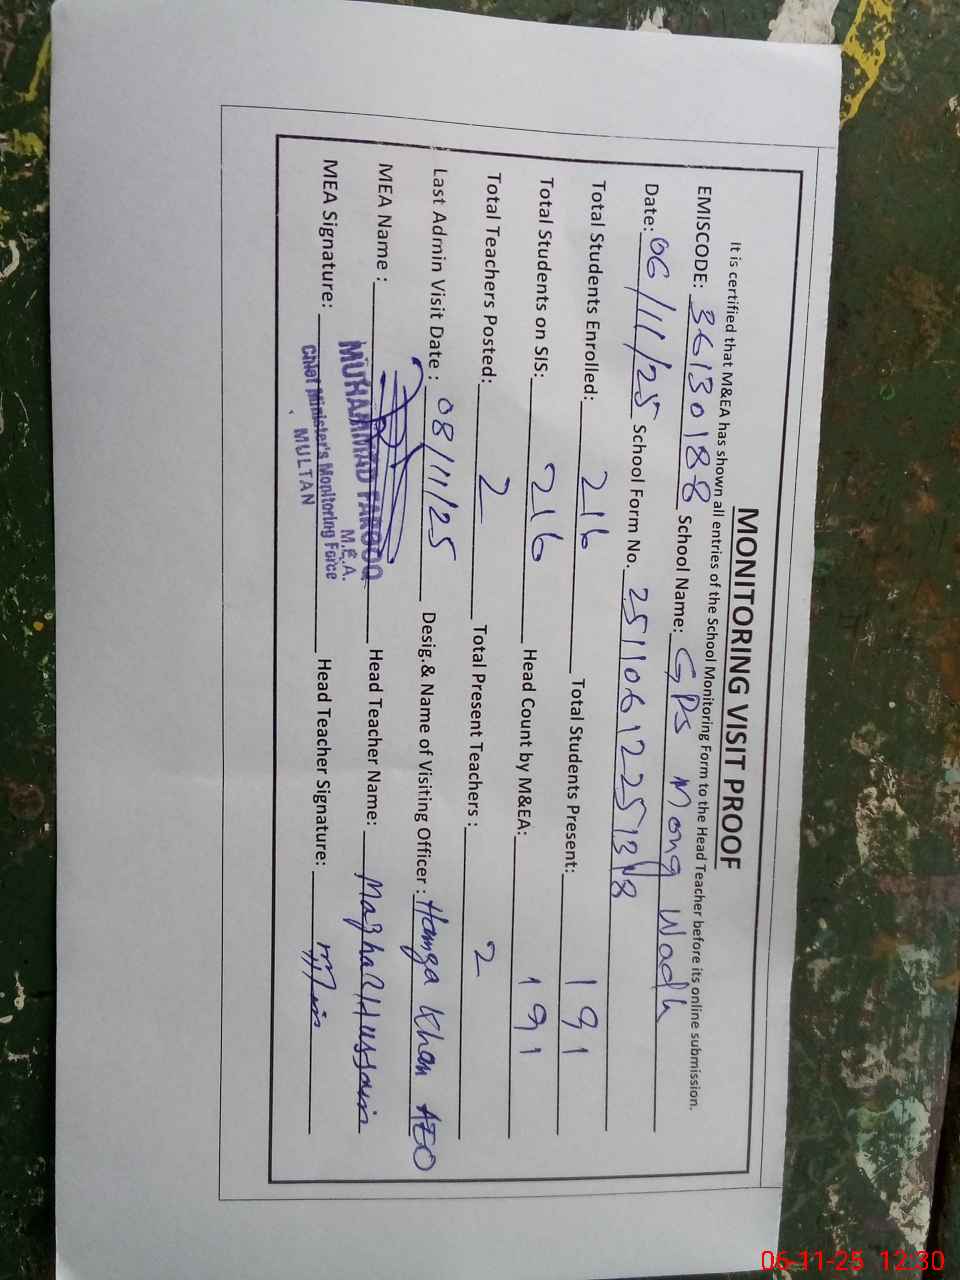 MONITORING VISIT PROOF
It is certified that M&EA has shown all entries of the School Monitoring Form to the Head Teacher before its online submission.
EMISCODE: 36130188 School Name: GPS Moong Wadh
Date: 06/11/25 School Form No. 251106122513
Total Students Enrolled: 216 Total Students Present: 191
Total Students on SIS: 216 Head Count by M&EA: 191
Total Teachers Posted: 2 Total Present Teachers : 2
Last Admin Visit Date : 08/11/25 Desig.& Name of Visiting Officer : Hamza Khan AEO
MEA Name : MUHAMMAD FAROOQ Head Teacher Name: Mazhar Hussain
M.E.A.
MEA Signature: Chief Minister's Monitoring Force Head Teacher Signature:
MULTAN
06-11-25 12:30